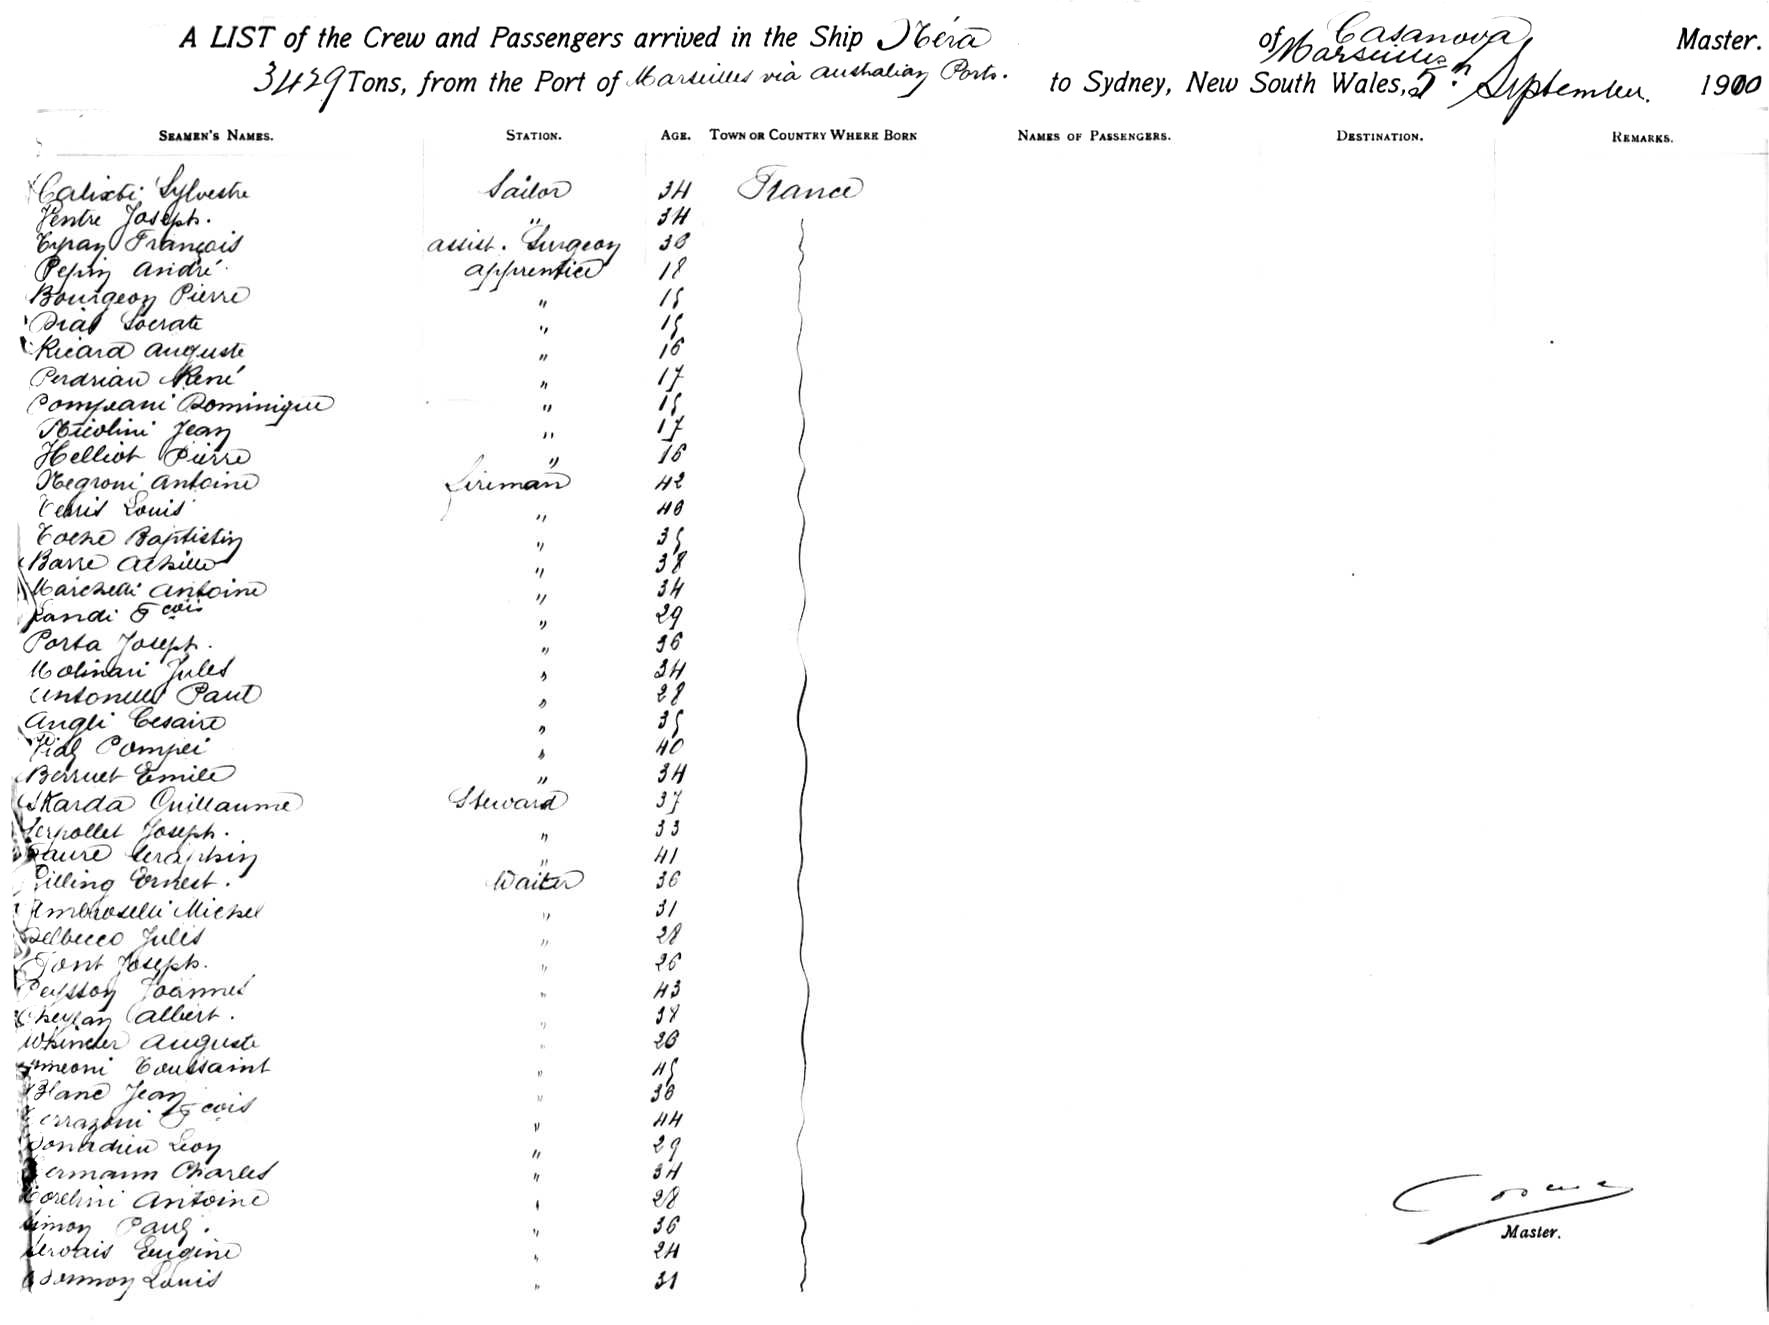 A LIST of the Crew and Passengers arrived in the Ship Néra of Marseilles Casanova Master.
3429 Tons, from the Port of Marseilles via Australian Ports. to Sydney, New South Wales, 5th September 1900
SEAMEN'S NAMES. STATION. AGE. TOWN OR COUNTRY WHERE BORN NAMES OF PASSENGERS. DESTINATION. REMARKS.
Calixti Sylvestre Sailor 34 France
Ventre Joseph. " 34
François assist. Surgeon 30
Pepin André apprentice 18
Bourgeon Pierre " 15
Dias Socrate " 15
Ricard Auguste " 16
Perdrian René " 17
Compeani Dominique " 15
Nicolini Jean " 17
Helliot Pierre " 16
Negroni Antoine Fireman 42
Louis " 40
Toche Baptistin " 35
Barre Achille " 38
Marchetti Antoine " 34
Landi Fcois " 29
Porta Joseph. " 36
Molinari Jules " 34
Antonelli Paul " 28
Angli Cesaire " 35
Vial Pompei " 40
Berruet Emile " 34
Skarda Guillaume Steward 37
Serpollet Joseph. " 33
Faure Seraphin " 41
Pilling Ernest. Waiter 36
Ambroselli Michel " 31
Delbecco Jules " 28
Font Joseph. " 26
Peysson Joannes " 43
Cheylan Albert. " 38
Auguste " 20
Simeoni Toussaint " 45
Blanc Jean " 36
Terrazoni Fcois " 44
Donadieu Leon " 29
Hermann Charles " 34
Antoine " 28
Simon Paul. " 36
Gervais Eugène " 24
Louis " 31
Master.